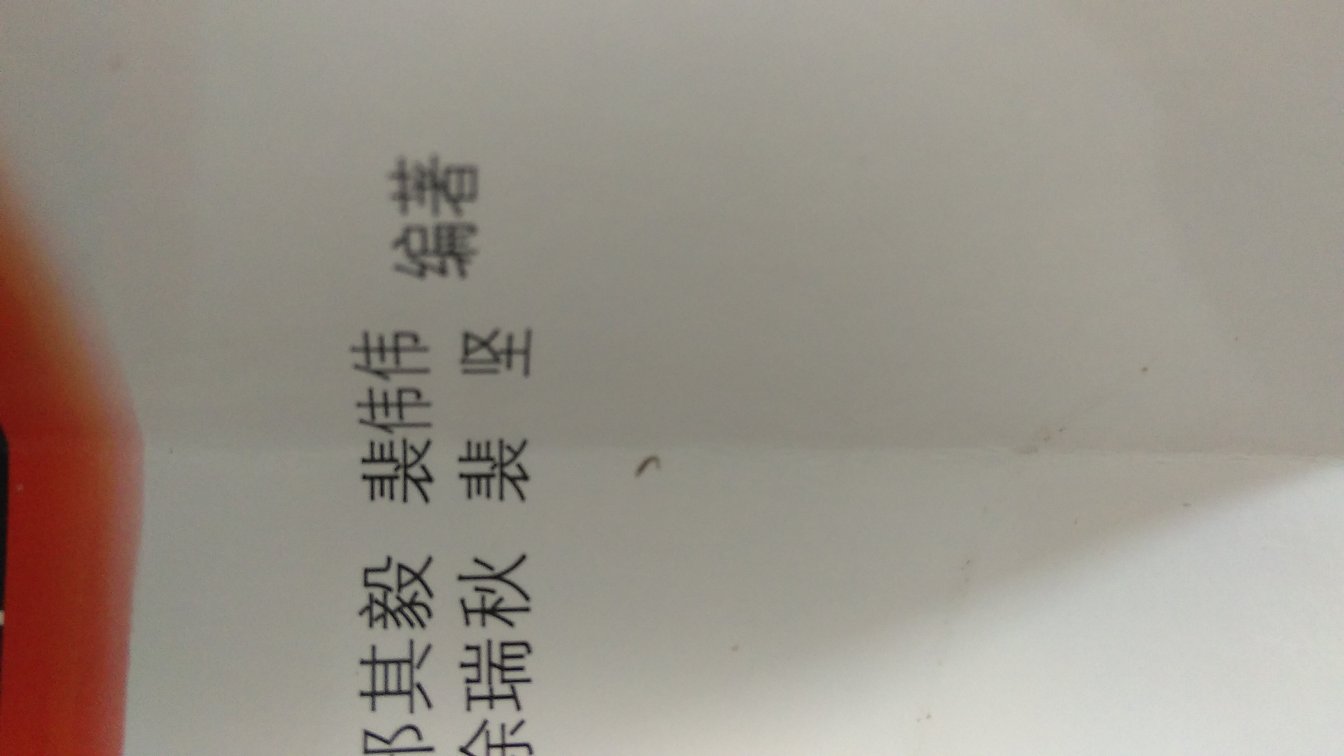 其毅 裴伟伟
瑞秋 裴 坚
编著